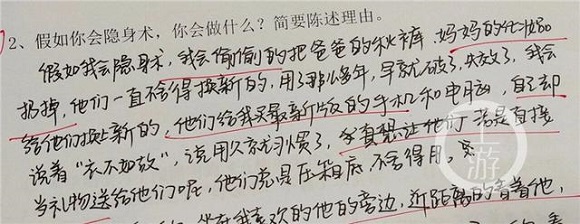 2、假如你会隐身术，你会做什么？简要陈述理由。
假如我会隐身术，我会偷偷的把爸爸的秋裤、妈妈的化妆品
扔掉，他们一直不舍得换新的，用了那么多年，早就破了，失效了，我会
给他们换上新的，他们给我买最新版的手机和电脑，自己却
说着“衣不如故”，说用久就习惯了，我真想让他们 若是直接
当礼物送给他们呢，他们总是压箱底，不舍得用，
坐在我喜欢的他的旁边，近距离的看着他，
上游